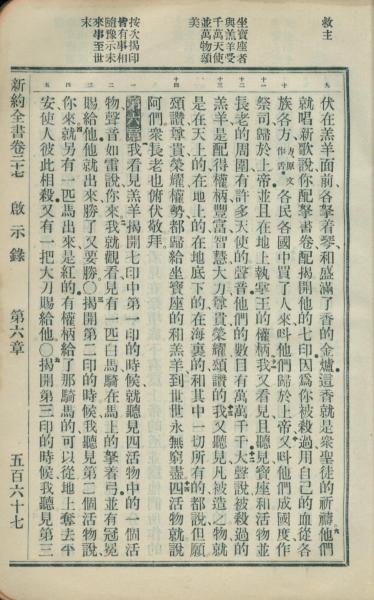 救主
坐寶座者
與羔羊受
千萬天使
並萬物頌
美
按次揭印
皆有事相
隨豫示未
來事至世
末
九
十一
十二
十三
十四
一
二
三
四
五
伏在羔羊面前各拏着琴和盛滿了香的金爐這香就是衆聖徒的祈禱他們
就唱新歌說你配拏書卷配揭開他的七印因爲你被殺過用自己的血從各
族各方方原文作舌各民各國中買了人來呌他們歸於上帝又呌他們成國度作
祭司歸於上帝並且在地上執掌王的權柄我又看見且聽見寶座和活物並
長老的周圍有許多天使的聲音他們的數目有萬萬千千大聲說被殺過的
羔羊是配得權柄豐富智慧大力尊貴榮耀頌讚的我又聽見凡被造之物就
是在天上的在地上的在地底下的在海裏的和其中一切所有的都說但願
頌讚尊貴榮耀權勢都歸給坐寶座的和羔羊到世世永無窮盡四活物就說
阿們衆長老也俯伏敬拜
第六章我看見羔羊揭開七印中第一印的時候就聽見四活物中的一個活
物聲音如雷說你來我就觀看見有一匹白馬騎在馬上的拏着弓並有冠冕
賜給他他就出來勝了又要勝〇揭開第二印的時候我聽見第二個活物說
你來就另有一匹馬出來是紅的有權柄給了那騎馬的可以從地上奪去平
安使人彼此相殺又有一把大刀賜給他〇揭開第三印的時候我聽見第三
新約全書卷二七 啟示錄 第六章 五百六十七